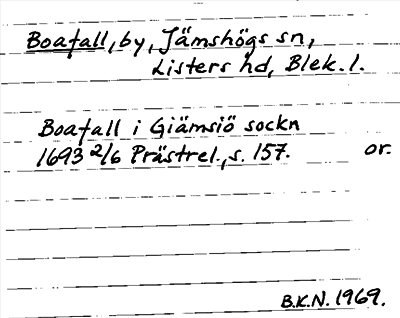 Boafall, by, Jämshögs sn,
Listers hd, Blek. l.
Boafall i Giämsiö sockn
1693 2/6 Prästrel., s. 157. or.
B.K.N. 1969.